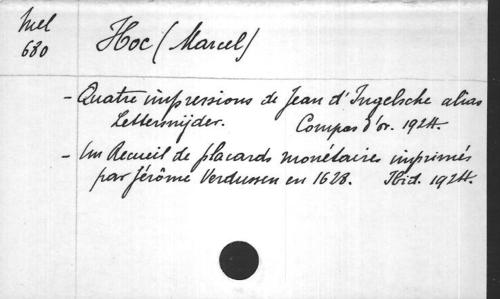 Mel
680
Hoc (Marcel)
- Quatre impressions de Jean d'Ingelsche alias
Lettersnijder. Compas d'or. 1924.
- Un Recueil de placards monétaires imprimés
par Jérôme Verdussen en 1628. Ibid. 1924.